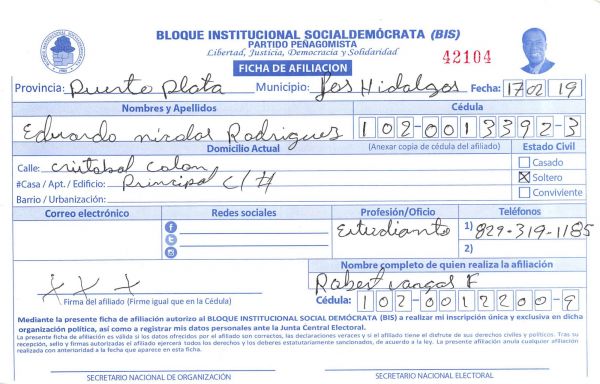 BLOQUE INSTITUCIONAL SOCIALDEMÓCRATA (BIS)
PARTIDO PEÑAGOMISTA
Libertad, Justicia, Democracia y Solidaridad
42104
FICHA DE AFILIACION
Provincia: Puerto Plata Municipio: Los Hidalgos Fecha: 17 02 19
Nombres y Apellidos Cédula
Eduardo nicolas Rodrigues 102-0013392-3
Domicilio Actual (Anexar copia de cédula del afiliado) Estado Civil
Calle: cristobal Colon Casado
#Casa / Apt. / Edificio: Principal C/# Soltero
Barrio / Urbanización: Conviviente
Correo electrónico Redes sociales Profesión/Oficio Teléfonos
Estudiante 1) 829-319-1185
2)
Nombre completo de quien realiza la afiliación
x x x Robert vargas F
Firma del afiliado (Firme igual que en la Cédula) Cédula: 102-0012200-9
Mediante la presente ficha de afiliación autorizo al BLOQUE INSTITUCIONAL SOCIAL DEMÓCRATA (BIS) a realizar mi inscripción única y exclusiva en dicha
organización política, así como a registrar mis datos personales ante la Junta Central Electoral.
La presente ficha de afiliación es válida si los datos ofrecidos por el afiliado son correctos, las declaraciones veraces y si el afiliado tiene el disfrute de sus derechos civiles y políticos. Tras su
recepción, sello y firmas autorizadas el afiliado ejercerá todos los derechos y los deberes estatutariamente sancionados, de acuerdo a la ley. La presente afiliación anula cualquier afiliación
realizada con anterioridad a la fecha que aparece en esta ficha.
SECRETARIO NACIONAL DE ORGANIZACIÓN SECRETARIO NACIONAL ELECTORAL